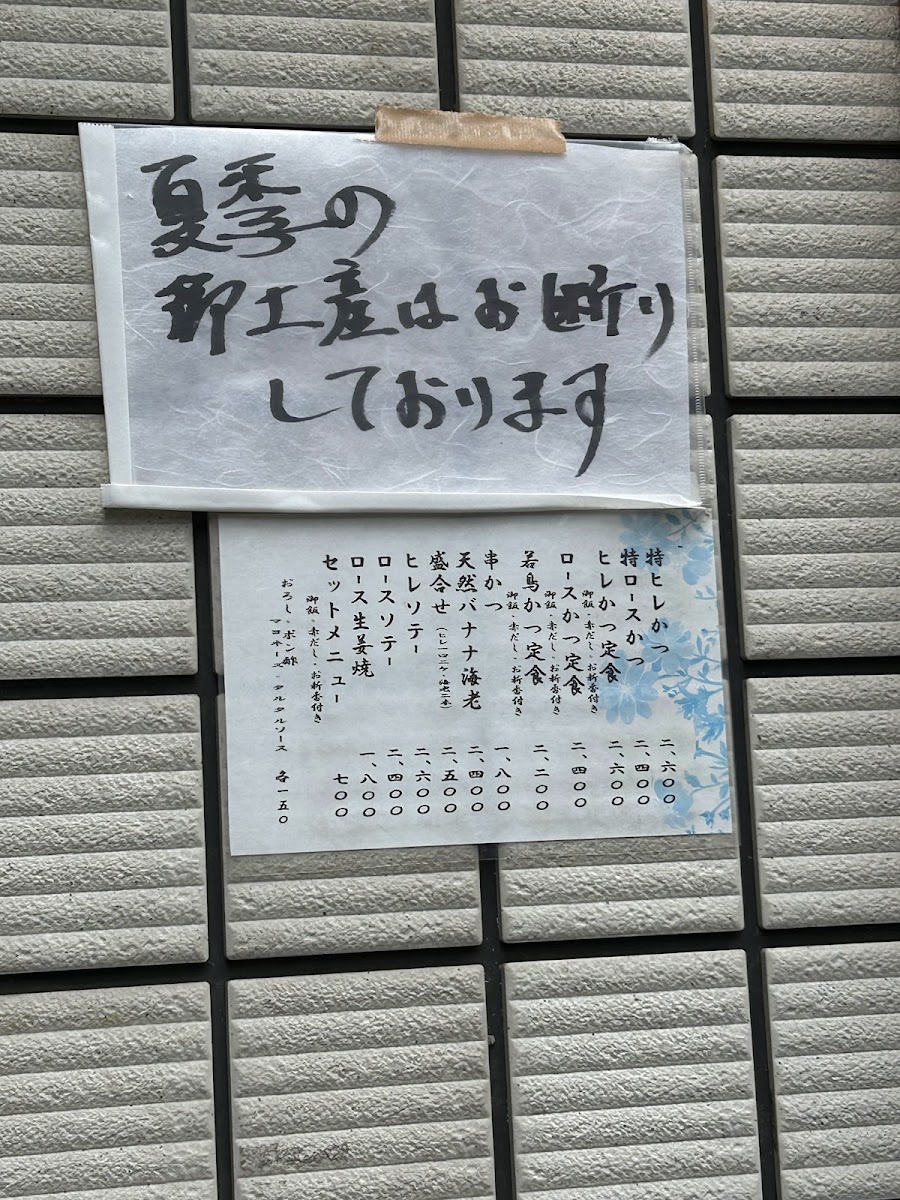 夏季の
御土産はお断り
しております
特ヒレかつ 二、六〇〇
特ロースかつ 二、四〇〇
ヒレかつ定食 二、六〇〇
御飯・赤だし・お新香付き
ロースかつ定食 二、四〇〇
御飯・赤だし・お新香付き
若鳥かつ定食 二、二〇〇
御飯・赤だし・お新香付き
串かつ 一、八〇〇
天然バナナ海老 二、四〇〇
盛合せ(ヒレ一口二ケ・海老二本) 二、五〇〇
ヒレソテー 二、六〇〇
ロースソテー 二、四〇〇
ロース生姜焼 一、八〇〇
セットメニュー 七〇〇
御飯・赤だし・お新香付き
おろし・ポン酢
マヨネーズ・タルタルソース 各一五〇